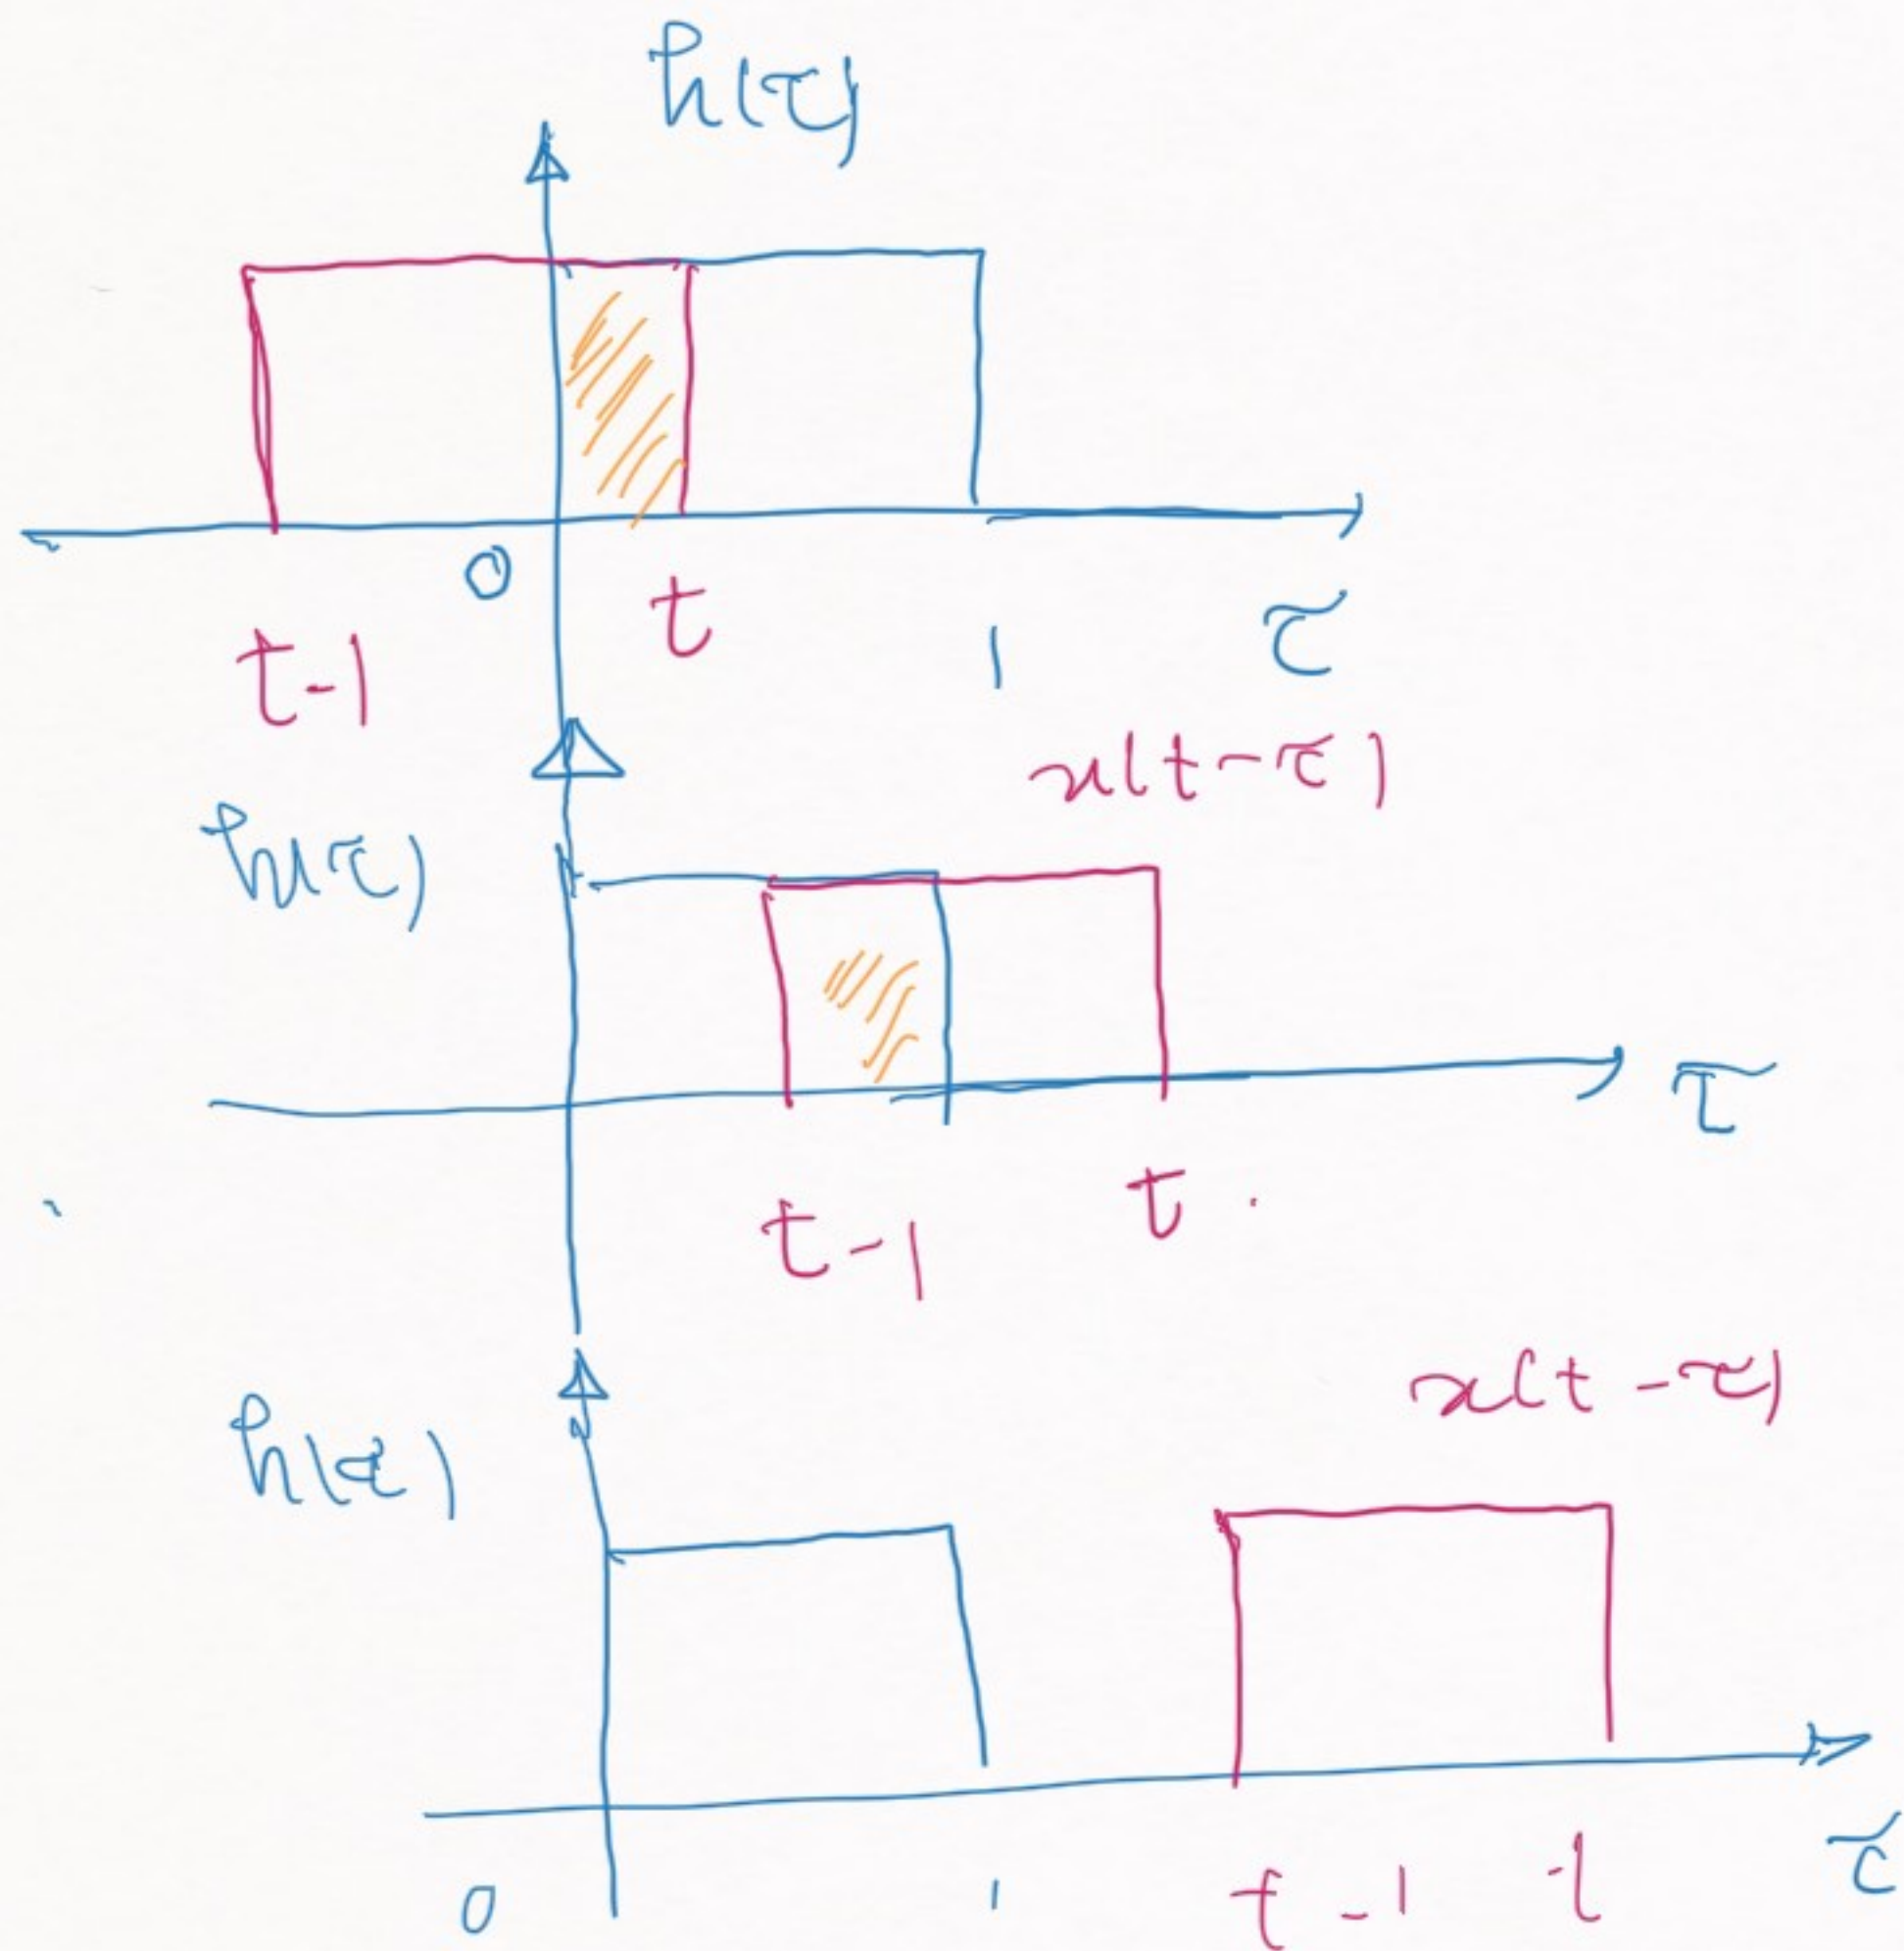 h(τ)
0 t 1 τ
t-1
x(t-τ)
h(τ)
τ
t-1 t
x(t-τ)
h(τ)
0 1 t-1 t τ